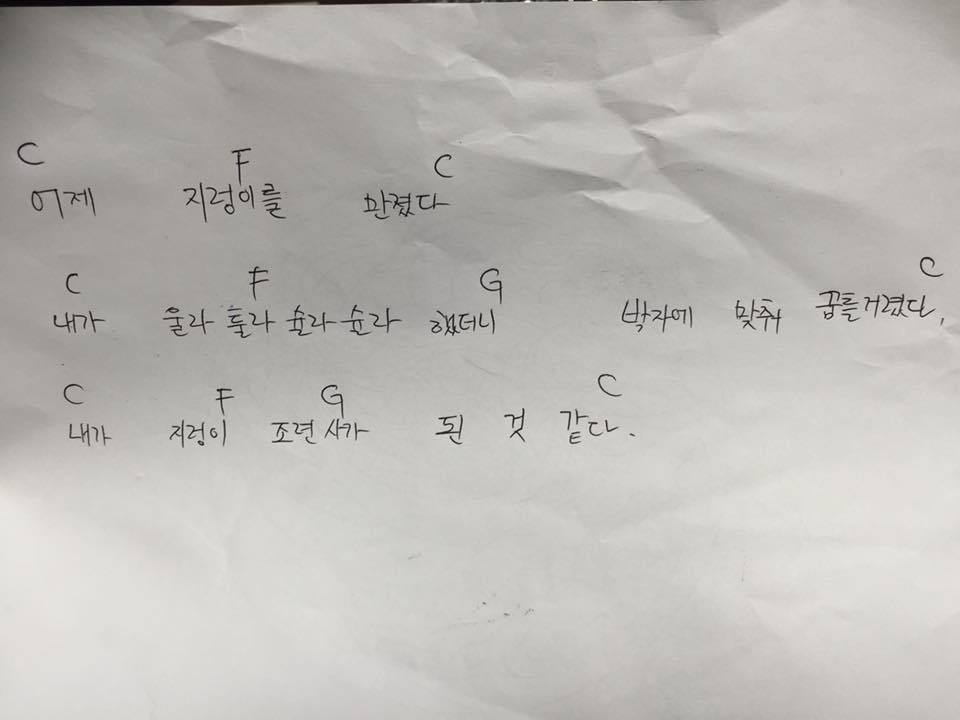 C F C
어제 지렁이를 만졌다
C F G C
내가 울라 훌라 숩라 숩라 했더니 박자에 맞춰 꿈틀거렸다.
C F G C
내가 지렁이 조련사가 된 것 같다.